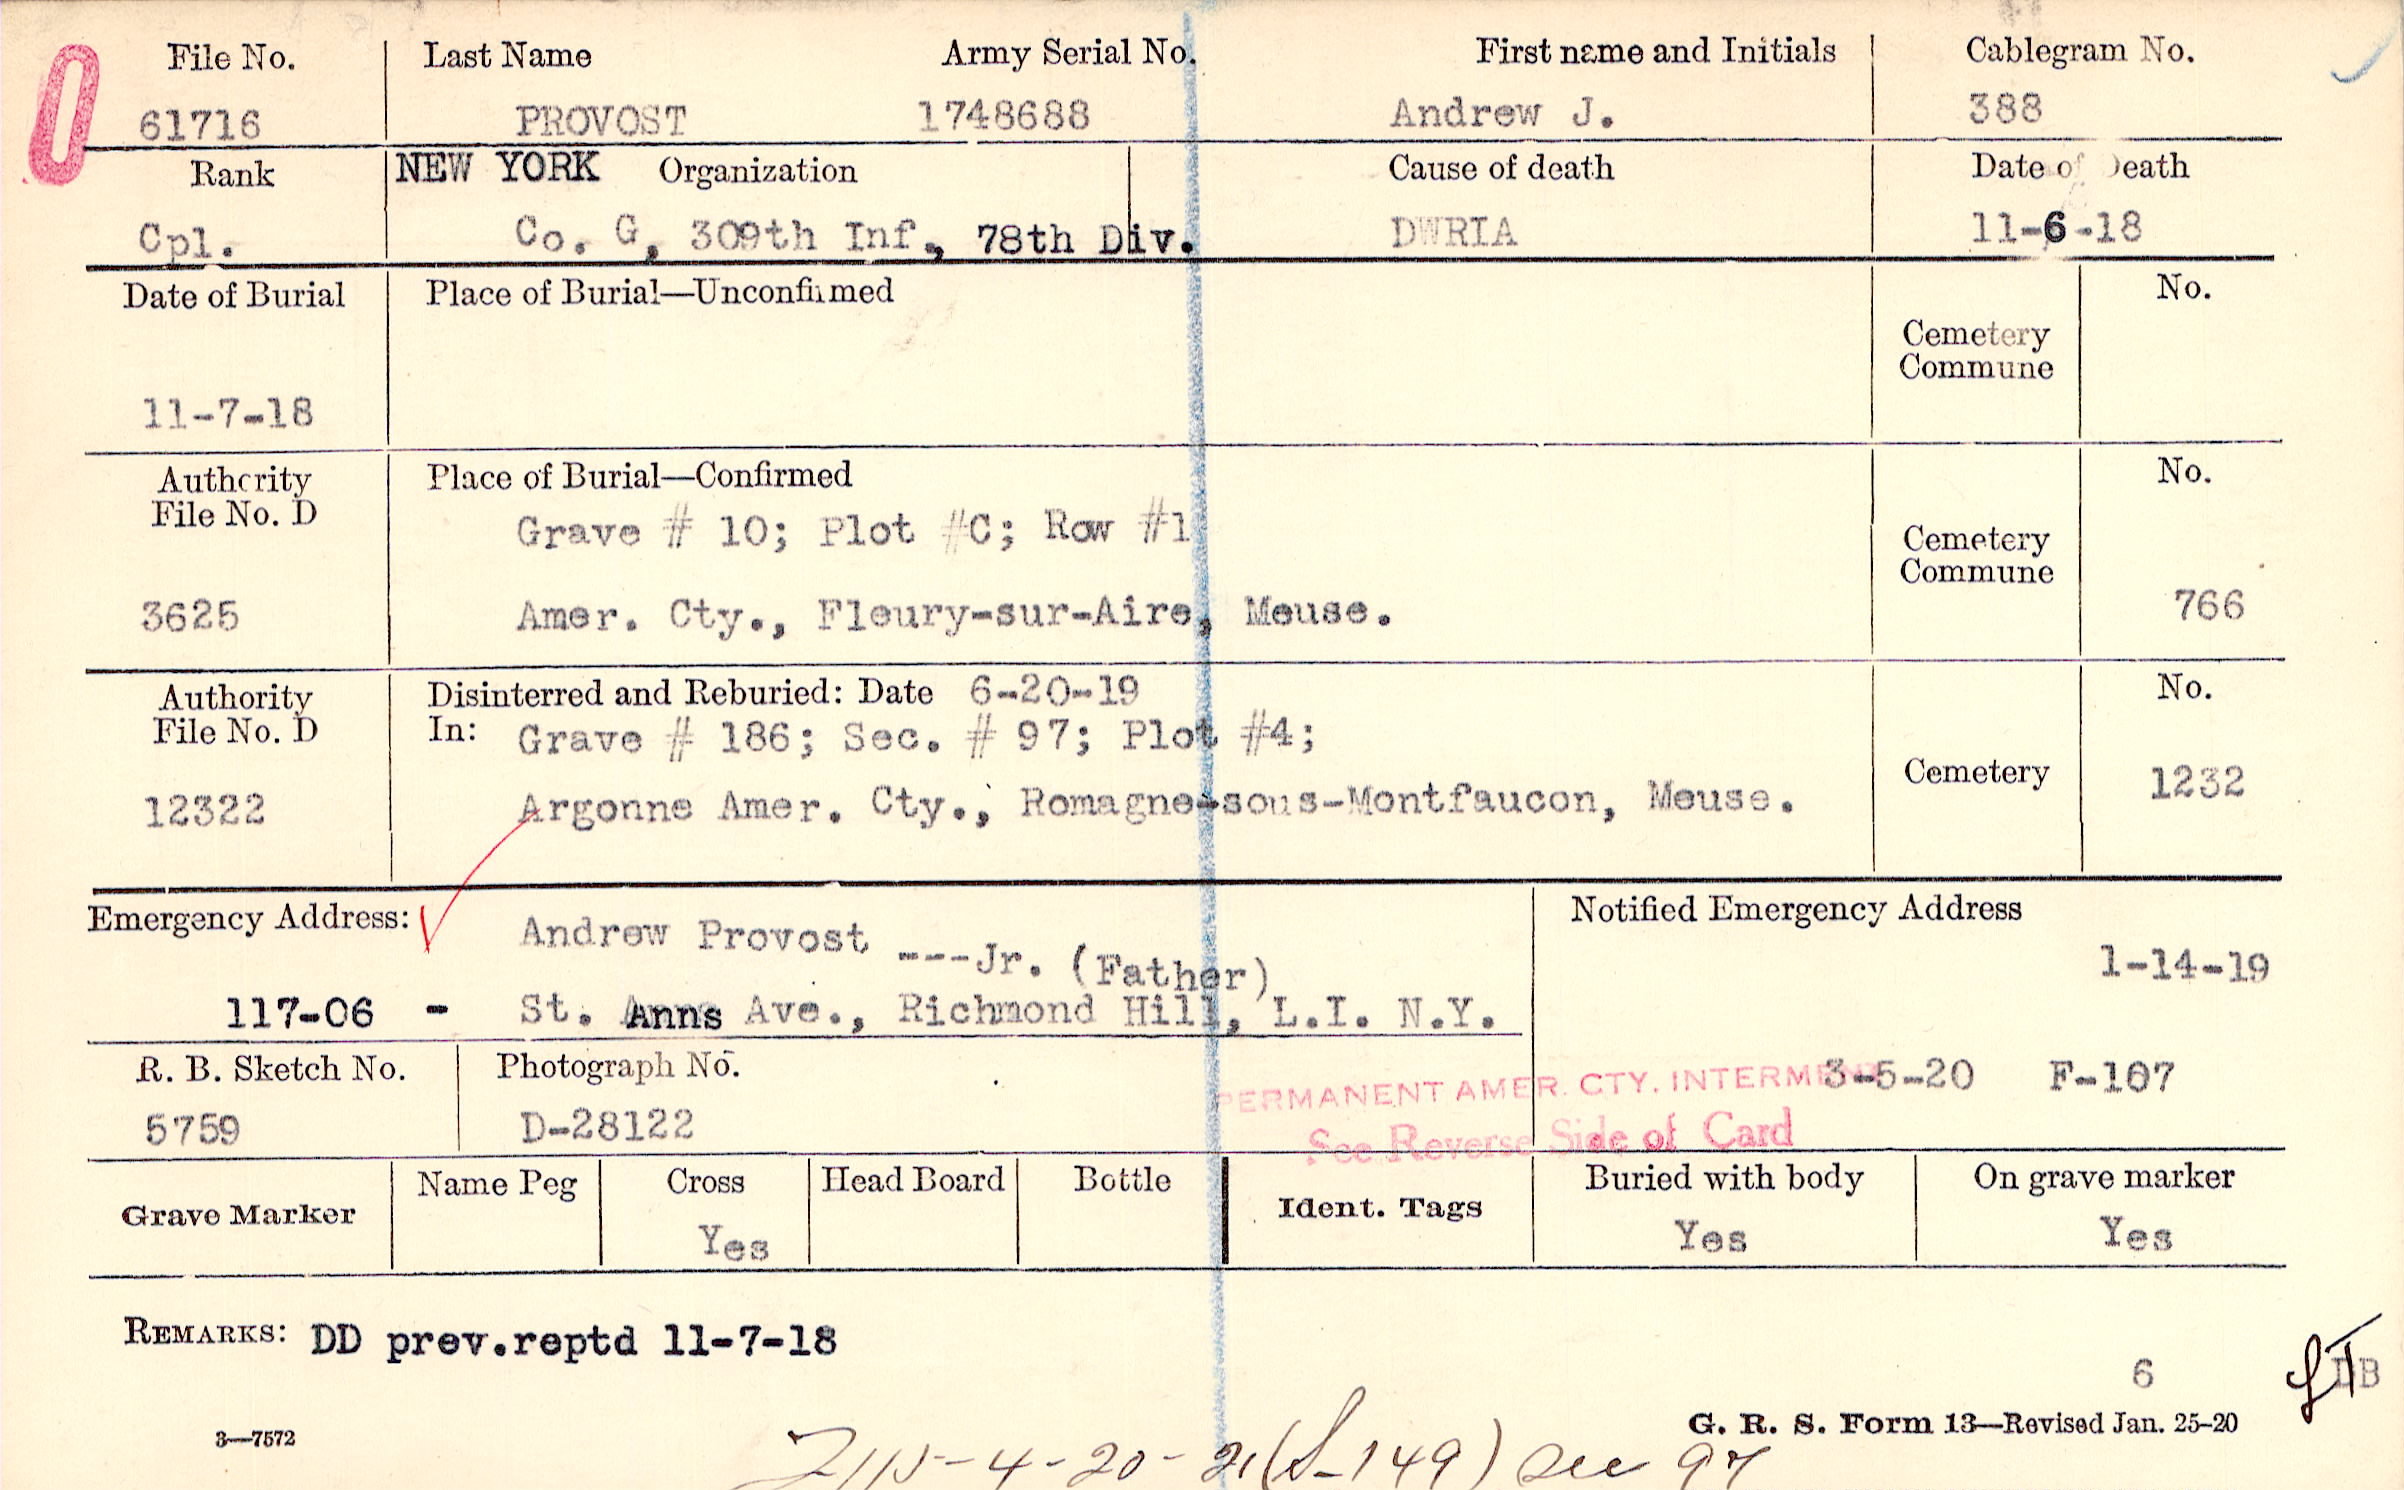 File No. Last Name Army Serial No. First name and Initials Cablegram No.
61716 PROVOST 1748688 Andrew J. 388
Rank NEW YORK Organization Cause of death Date of Death
Cpl. Co. G, 309th Inf., 78th Div. DWRIA 11-6-18
Date of Burial Place of Burial—Unconfirmed No.
Cemetery
Commune
11-7-18
Authority Place of Burial—Confirmed No.
File No. D
Grave # 10; Plot #C; Row #1
Cemetery
Commune
3625 Amer. Cty., Fleury-sur-Aire, Meuse. 766
Authority Disinterred and Reburied: Date 6-20-19 No.
File No. D In: Grave # 186; Sec. # 97; Plot #4;
Cemetery
12322 Argonne Amer. Cty., Romagne-sous-Montfaucon, Meuse. 1232
Emergency Address: Andrew Provost ---Jr. (Father) Notified Emergency Address
1-14-19
117-06 - St. Anns Ave., Richmond Hill, L.I. N.Y.
R. B. Sketch No. Photograph No.
PERMANENT AMER. CTY. INTERMENT 3-5-20 F-107
5759 D-28122 See Reverse Side of Card
Grave Marker Name Peg Cross Head Board Bottle Ident. Tags Buried with body On grave marker
Yes Yes Yes
REMARKS: DD prev.reptd 11-7-18
6 DB
G. R. S. Form 13—Revised Jan. 25-20
3—7572
4-20-21 (S-149) see 97